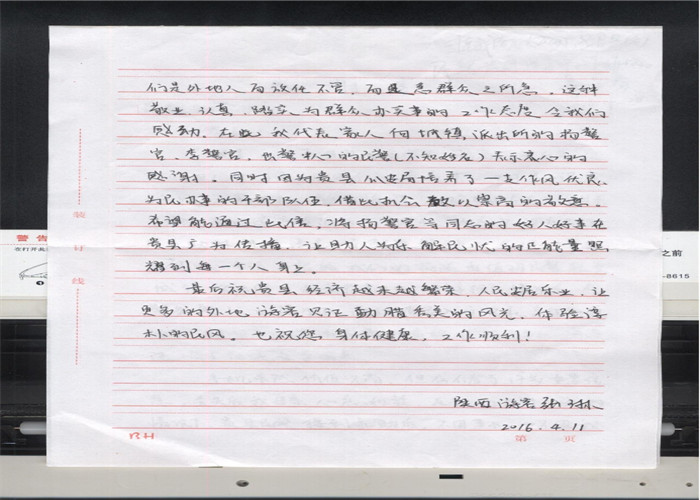 们是外地人而放任不管，而是急群众之所急，这种
敬业、认真、踏实、为群众办实事的工作态度令我们
感动。在此我代表家人向城镇派出所的杨警
官、李警官、出警
的民警(不知姓名)表示衷心的
感谢。同时因为贵县公安局培养了一支作风优良、
为民办事的干部队伍，借此机会致以崇高的敬意。
希望能通过此信，将杨警官等同志的好人好事在
贵县广为传播，让助人为乐 解民忧的正能量照
耀到每一个人身上。
最后祝贵县经济越来越繁荣，人民安居乐业，让
更多的外地游客见证勐腊秀美的风光，体验淳
朴的民风。也祝您身体健康，工作顺利！
陕西游客
2016.4.11
第 页
BH
装
订
线
警告
之前
-8615